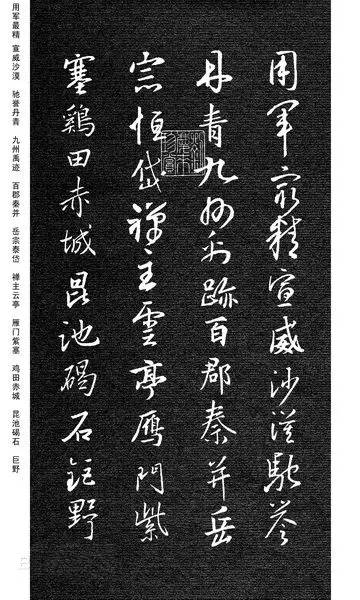 用軍冣精宣威沙漠馳誉
丹青九州禹跡百郡秦并岳
宗恒岱禪主雲亭鴈門紫
塞鷄田赤城昆池碣石鉅野
用军最精 宣威沙漠 驰誉丹青 九州禹迹 百郡秦并 岳宗泰岱 禅主云亭 雁门紫塞 鸡田赤城 昆池碣石 巨野